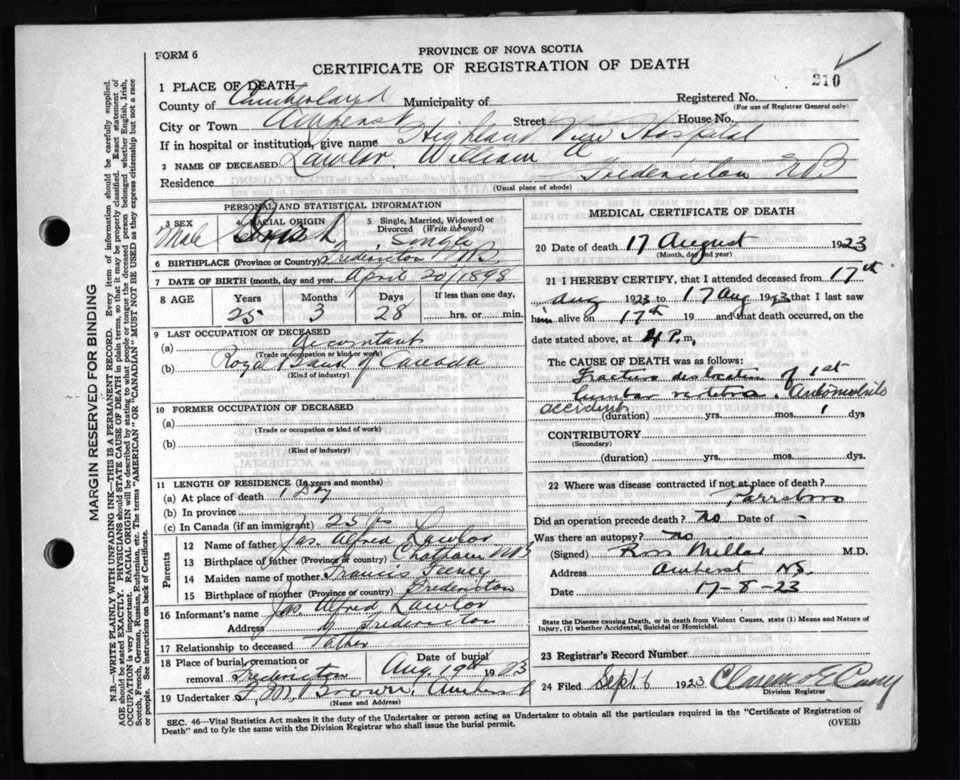 FORM 6
PROVINCE OF NOVA SCOTIA
CERTIFICATE OF REGISTRATION OF DEATH
210
1 PLACE OF DEATH
County of Cumberland Municipality of Registered No.
(For use of Registrar General only)
City or Town Amherst Street House No.
If in hospital or institution, give name Highland View Hospital
2 NAME OF DECEASED Lawlor, William A
Residence Fredericton NB
(Usual place of abode)
PERSONAL AND STATISTICAL INFORMATION
3 SEX Male
4 RACIAL ORIGIN
5 Single, Married, Widowed or Divorced (Write the word) Single
6 BIRTHPLACE (Province or Country) Fredericton NB.
7 DATE OF BIRTH (month, day and year) April 20/1898
8 AGE Years 25 Months 3 Days 28 If less than one day, hrs. or min.
9 LAST OCCUPATION OF DECEASED
(a) Accountant
(Trade or occupation or kind of work)
(b) Royal Bank of Canada
(Kind of industry)
10 FORMER OCCUPATION OF DECEASED
(a)
(Trade or occupation or kind of work)
(b)
(Kind of industry)
11 LENGTH OF RESIDENCE (In years and months)
(a) At place of death 1 Day
(b) In province
(c) In Canada (if an immigrant) 25 yrs
Parents
12 Name of father Jas. Alfred Lawlor
13 Birthplace of father (Province or country) Chatham NB
14 Maiden name of mother Francis
15 Birthplace of mother (Province or country) Fredericton
16 Informant's name Jas. Alfred Lawlor
Address Fredericton
17 Relationship to deceased Father
18 Place of burial, cremation or removal Fredericton Date of burial Aug. 19th 1923
19 Undertaker F. M. Brown, Amherst
(Name and Address)
MEDICAL CERTIFICATE OF DEATH
20 Date of death 17 August 1923
(Month, day and year)
21 I HEREBY CERTIFY, that I attended deceased from 17th
Aug 1923 to 17 Aug 1923 that I last saw
him alive on 17th 19 and that death occurred, on
date stated above, at 4 P. m.
The CAUSE OF DEATH was as follows:
Fracture dislocation of 1st
lumbar vertebra. Automobile
accident
(duration) yrs. mos. 1 dys
CONTRIBUTORY
(Secondary)
(duration) yrs. mos. dys
22 Where was disease contracted if not at place of death?
Parrsboro
Did an operation precede death? no Date of -
Was there an autopsy? no
(Signed) Ross Millar M.D.
Address Amherst NS.
Date 17-8-23
State the Disease causing Death, or in death from Violent Causes, state (1) Means and Nature of Injury, (2) whether Accidental, Suicidal or Homicidal.
23 Registrar's Record Number
24 Filed Sept. 6 1923
Division Registrar
SEC. 46—Vital Statistics Act makes it the duty of the Undertaker or person acting as Undertaker to obtain all the particulars required in the "Certificate of Registration of
Death" and to fyle the same with the Division Registrar who shall issue the burial permit.
(OVER)
MARGIN RESERVED FOR BINDING
N.B.—WRITE PLAINLY WITH UNFADING INK—THIS IS A PERMANENT RECORD. Every item of information should be carefully supplied.
AGE should be stated EXACTLY. PHYSICIANS should STATE CAUSE OF DEATH in plain terms, so that it may be properly classified. Exact statement of
OCCUPATION is very important. RACIAL ORIGIN will be described by stating to what people or tongue the deceased person belonged whether English, Irish,
Scotch, French, German, Russian, Ruthenian, etc. The terms "AMERICAN" OR "CANADIAN" MUST NOT BE USED as they express citizenship but not a race
or people. See instructions on back of Certificate.